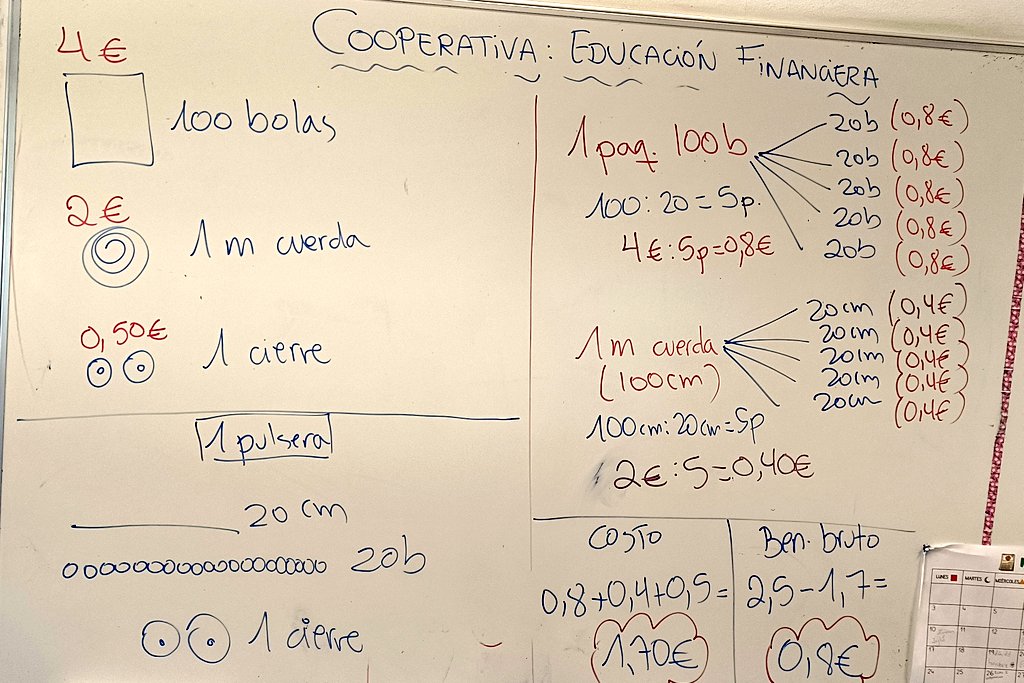 COOPERATIVA: EDUCACIÓN FINANCIERA
4€
100 bolas
2€
1 m cuerda
0,50€
1 cierre
1 pulsera
20 cm
20b
1 cierre
1 paq. 100b
20b (0,8€)
20b (0,8€)
20b (0,8€)
20b (0,8€)
20b (0,8€)
100:20=5p.
4€:5p=0,8€
1m cuerda
(100cm)
20cm (0,4€)
20cm (0,4€)
20cm (0,4€)
20cm (0,4€)
20cm (0,4€)
100cm:20cm=5p
2€:5=0,40€
COSTO
0,8+0,4+0,5=
1,70€
Ben. bruto
2,5-1,7=
0,8€
LUNES MARTES MIÉRCOLES
3 4 5
10 11 12
17 18 19
24 25 26